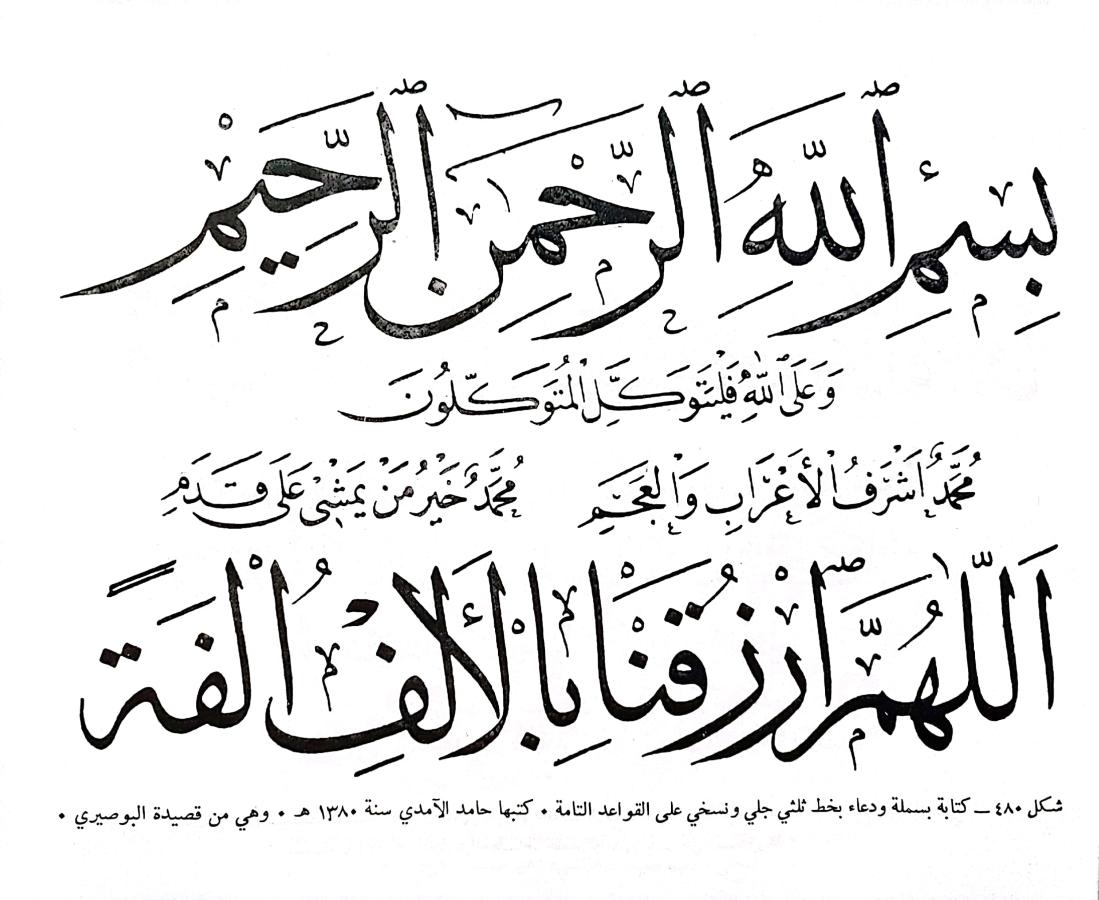 بِسْمِ ٱللّٰهِ ٱلرَّحْمٰنِ ٱلرَّحِيْمِ
وَعَلَى ٱللّٰهِ فَلْيَتَوَكَّلِ الْمُتَوَكِّلُونَ
مُحَمَّدٌ اَشْرَفُ الْأَعْرَابِ وَالْعَجَمِ مُحَمَّدٌ خَيْرُ مَنْ يَمْشِي عَلَى قَدَمِ
اَللّٰهُمَّ ٱرْزُقْنَا بِالْأَلِفِ اُلْفَةً
شكل ٤٨٠ ــ كتابة بسملة ودعاء بخط ثلثي جلي ونسخي على القواعد التامة • كتبها حامد الآمدي سنة ١٣٨٠ هـ • وهي من قصيدة البوصيري •